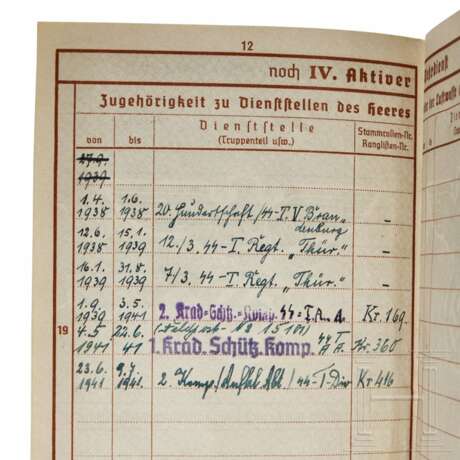 12
noch IV. Aktiver
Zugehörigkeit zu Dienststellen des Heeres
von
bis
Dienststelle
(Truppenteil usw.)
Stammrollen-Nr.
Ranglisten-Nr.
27.9.
1939
1.4. 1.6.
1938 1938 20. Hundertschaft/SS-T.V. Bran-
denburg –
12.6. 15.1.
1938 1939 12./3. SS-T. Regt. „Thür.“ –
16.1. 31.8.
1939 1939 7/3. SS-T. Regt. „Thür.“ –
1.9. 3.5.
1939 1941 2. Krad=Schtz. SS=T.A. Kr. 169
19
4.5 22.6 (Feldpost-No 15101)
1941 41 1. Krad. Schütz. Komp. SS T Kr. 360
23.6. 9.7.
1941 1941 2. Komp./ SS-T-Div Kr 416